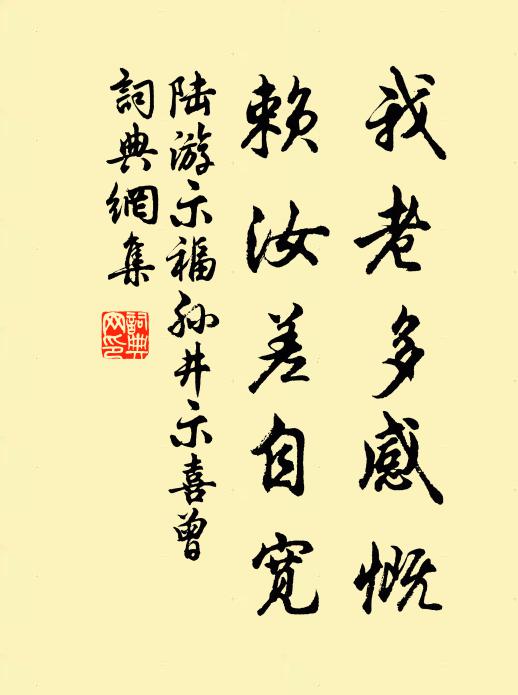 我老多感慨
賴汝差自寬
陆游示福孙井示喜曾
詞典網集
詞典网印